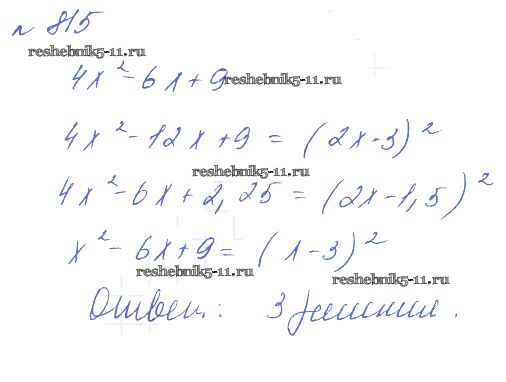 № 815
reshebnik5-11.ru
4x² - 6x + 9 reshebnik5-11.ru
4x² - 12x + 9 = (2x - 3)²
reshebnik5-11.ru
4x² - 6x + 2,25 = (2x - 1,5)²
x² - 6x + 9 = (x - 3)²
reshebnik5-11.ru
reshebnik5-11.ru
Ответ: 3